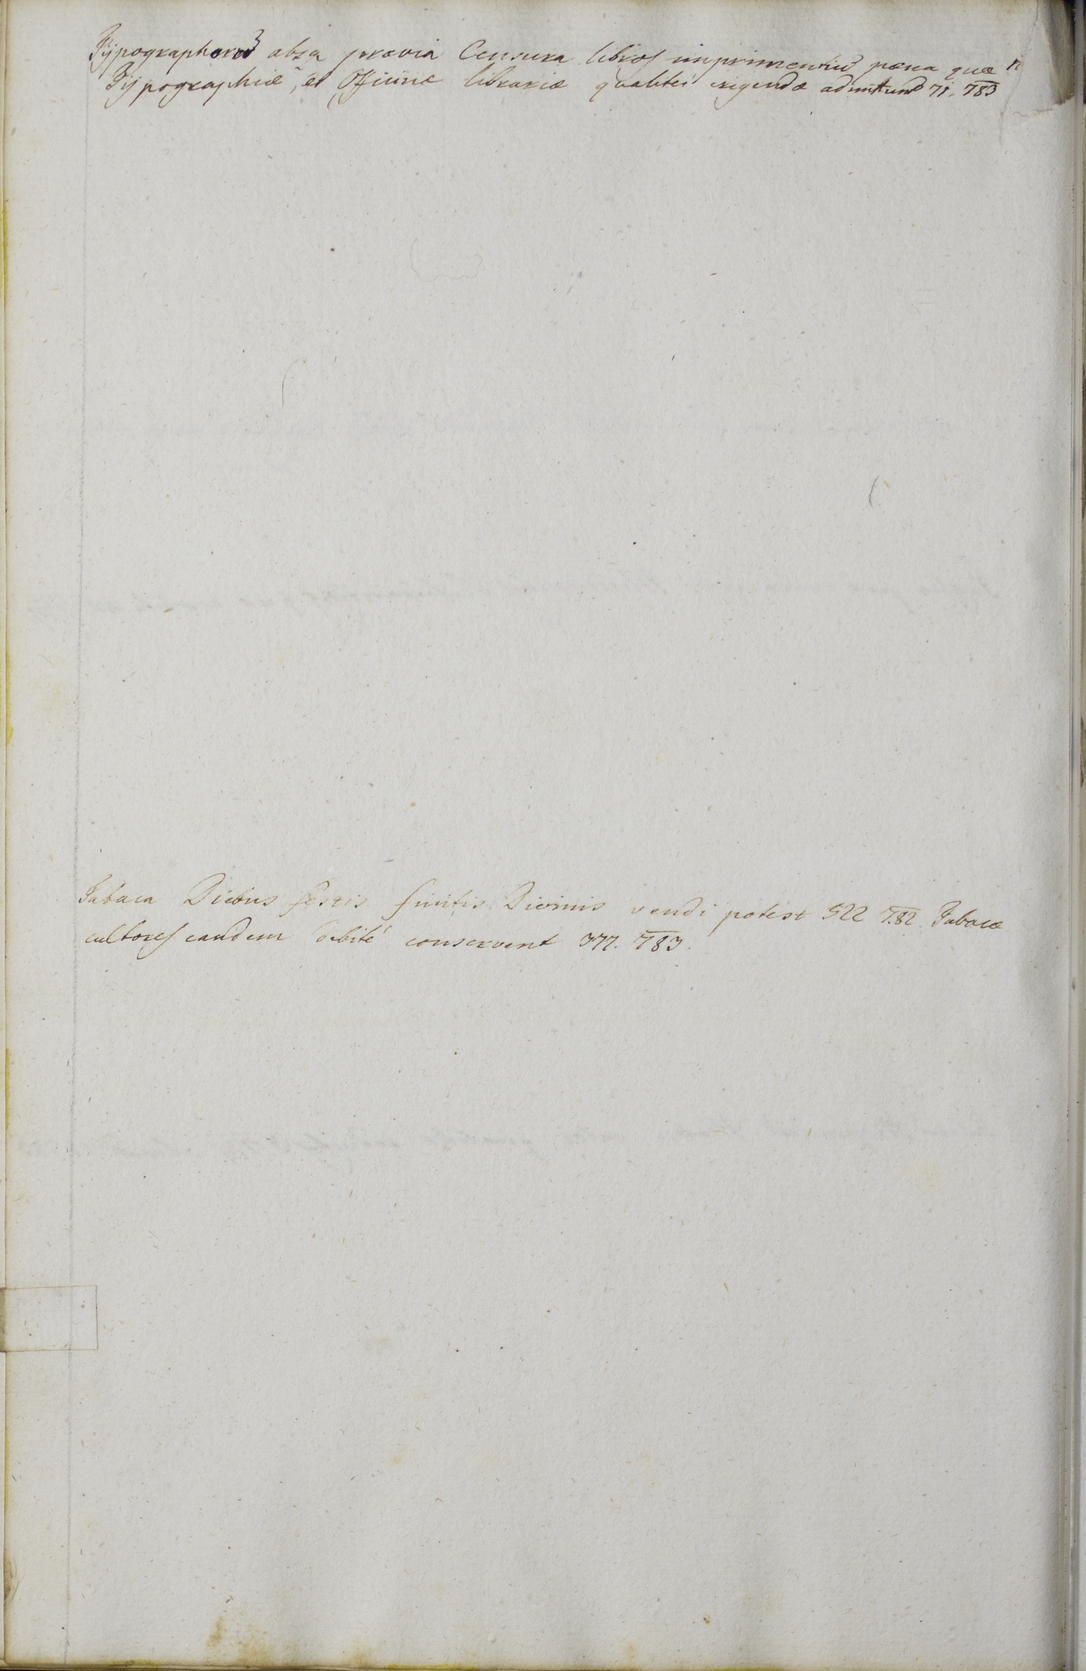 Typographorum absq praevia Censura libros imprimentium paena quae n
Typographiae, et Officinae librariae qualiter erigendae admittund 71. 783
Tabaca Diebus festis finitis Divinis vendi potest 522 782 Tabacae
cultores eandem debité conservent 377. 783.